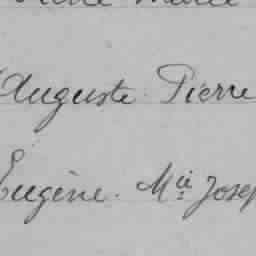 Auguste Pierre
Eugène. Mie Josep